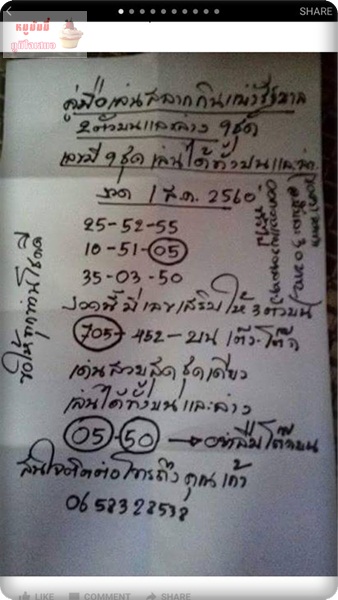 SHARE
คู่มือเล่นสลากกินแบ่งรัฐบาล
2 ตัวบนและล่าง 9 ชุด
เลขมี 9 ชุด เล่นได้ทั้งบนและล่าง
งวด 1 มี.ค. 2560
25-52-55
10-51-05
35-03-50
งวดนี้มีเลขเสริมให้ 3 ตัวบน
705-452-บน เต๊ง-โต๊ด
เด่นสวยสุดชุดเดียว
เล่นได้ทั้งบนและล่าง
05-50
สนใจติดต่อโทรถึงคุณ
0658323538
ขอให้ทุกท่านโชคดี
LIKE COMMENT SHARE